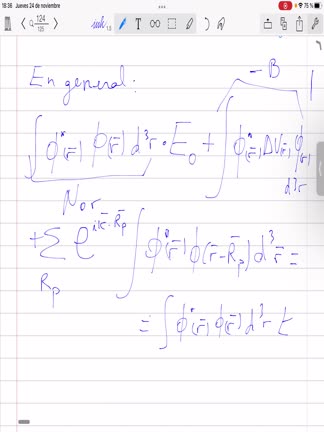 18:36 Jueves 24 de noviembre 75 %
124
125
- B
En general:
∫ φ*(r̄) φ(r̄) d³r · E₀ + ∫ φ*(r̄) ΔV(r̄) φ(r̄) d³r
Nor
+ Σ e^{i k̄·R̄p} ∫ φ*(r̄) φ(r̄-R̄p) d³r̄ =
Rp
= ∫ φ*(r̄) φ(r̄) d³r t